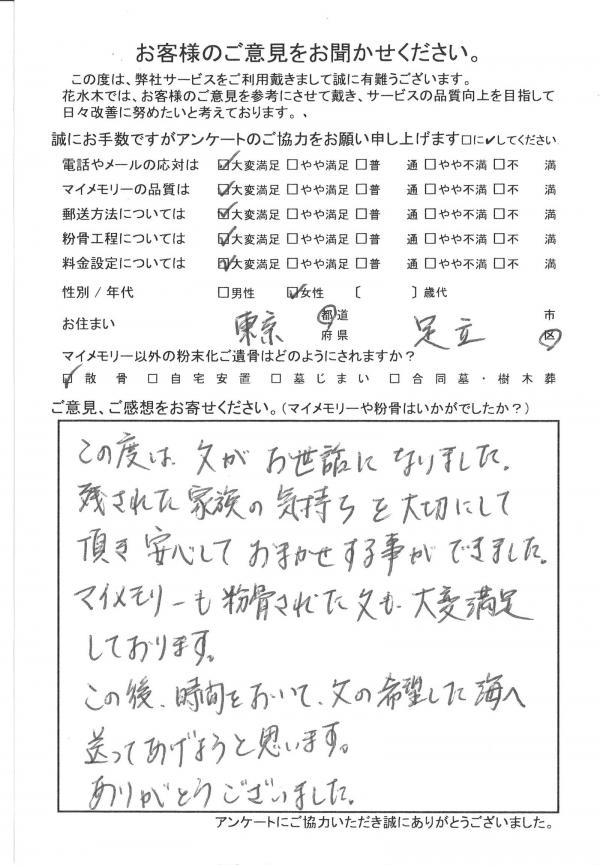 お客様のご意見をお聞かせください。
この度は、弊社サービスをご利用戴きまして誠に有難うございます。
花水木では、お客様のご意見を参考にさせて戴き、サービスの品質向上を目指して
日々改善に努めたいと考えております。、
誠にお手数ですがアンケートのご協力をお願い申し上げます□に✓してください
電話やメールの応対は ☑大変満足 □やや満足 □普 通 □やや不満 □不 満
マイメモリーの品質は ☑大変満足 □やや満足 □普 通 □やや不満 □不 満
郵送方法については ☑大変満足 □やや満足 □普 通 □やや不満 □不 満
粉骨工程については ☑大変満足 □やや満足 □普 通 □やや不満 □不 満
料金設定については ☑大変満足 □やや満足 □普 通 □やや不満 □不 満
性別 / 年代 □男性 ☑女性 〔 〕歳代
お住まい 東京 都道府県 足立 市区
マイメモリー以外の粉末化ご遺骨はどのようにされますか？
☑散骨 □自宅安置 □墓じまい □合同墓・樹木葬
ご意見、ご感想をお寄せください。（マイメモリーや粉骨はいかがでしたか？）
この度は、父がお世話になりました。
残された家族の気持ちを大切にして
頂き安心しておまかせする事ができました。
マイメモリーも粉骨された父も、大変満足
しております。
この後、時間をおいて、父の希望した海へ
送ってあげようと思います。
ありがとうございました。
アンケートにご協力いただき誠にありがとうございました。